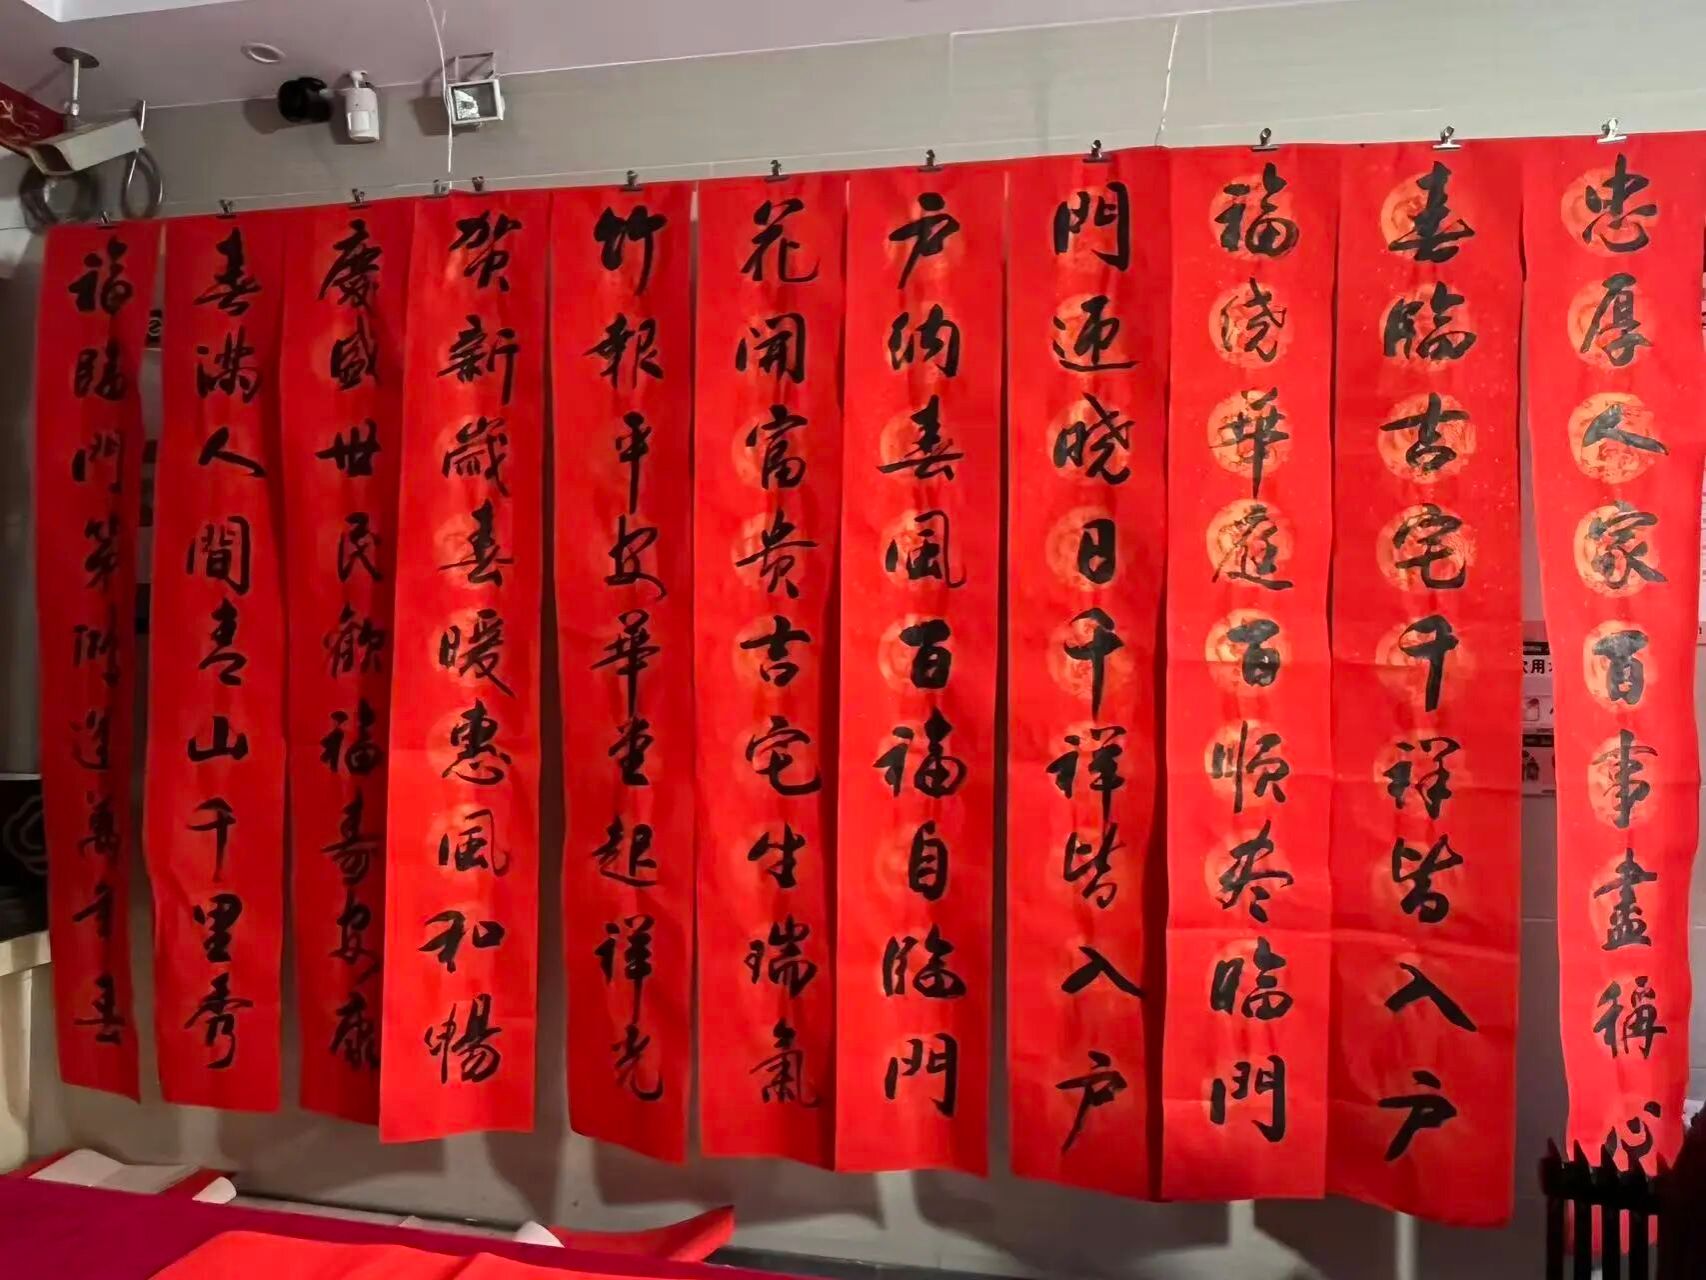 忠厚人家百事盡稱心
春臨吉宅千祥皆入户
福绕華庭百順尽临門
門迎晓日千祥皆入户
户纳春風百福自临門
花開富贵吉宅生瑞氣
竹報平安華堂起祥光
贺新歲春暖惠風和暢
慶盛世民歡福壽安康
春满人間青山千里秀
福臨門第
春